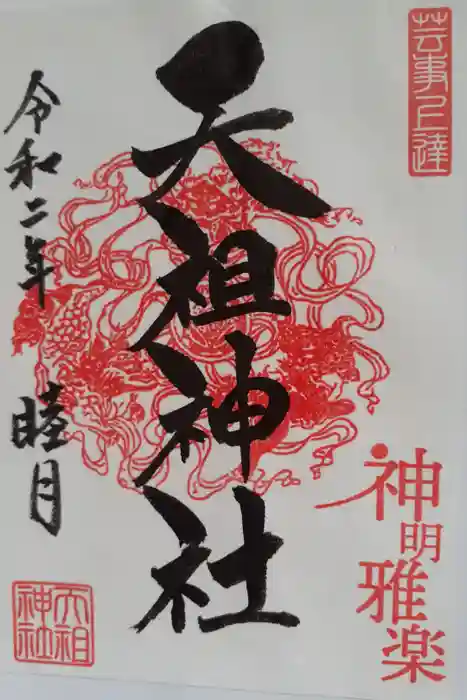 芸事上達
天祖神社
令和二年 睦月
神明雅楽
天祖神社